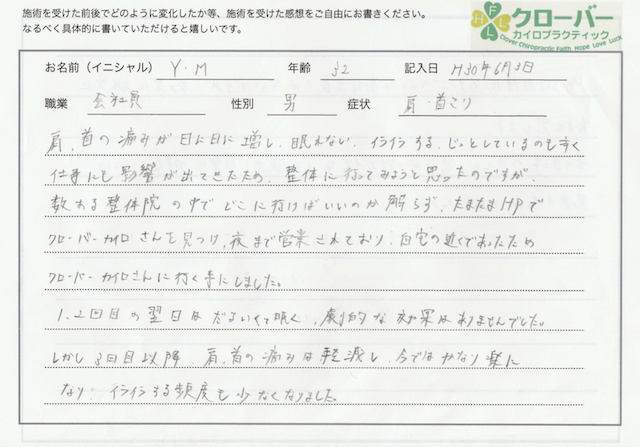 施術を受けた前後でどのように変化したか等、施術を受けた感想をご自由にお書きください。
なるべく具体的に書いていただけると嬉しいです。
HFLL
クローバー
カイロプラクティック
Clover Chiropractic Faith Hope Love Luck
お名前（イニシャル） Y・M 年齢 32 記入日 H30年6月3日
職業 会社員 性別 男 症状 肩・首こり
肩、首の痛みが日に日に増し、眠れない、イライラする、じっとしているのも辛く
仕事にも影響が出てきたため、整体に行ってみようと思ったのですが、
数ある整体院の中でどこに行けばいいのか解らず、たまたまHPで
クローバーカイロさんを見つけ、夜まで営業されており、自宅の近くであったため
クローバーカイロさんに行く事にしました。
1、2回目の翌日はだるくて眠く、劇的な効果はありませんでした。
しかし3回目以降、肩、首の痛みは軽減し、今ではかなり楽に
なり、イライラする頻度も少なくなりました。